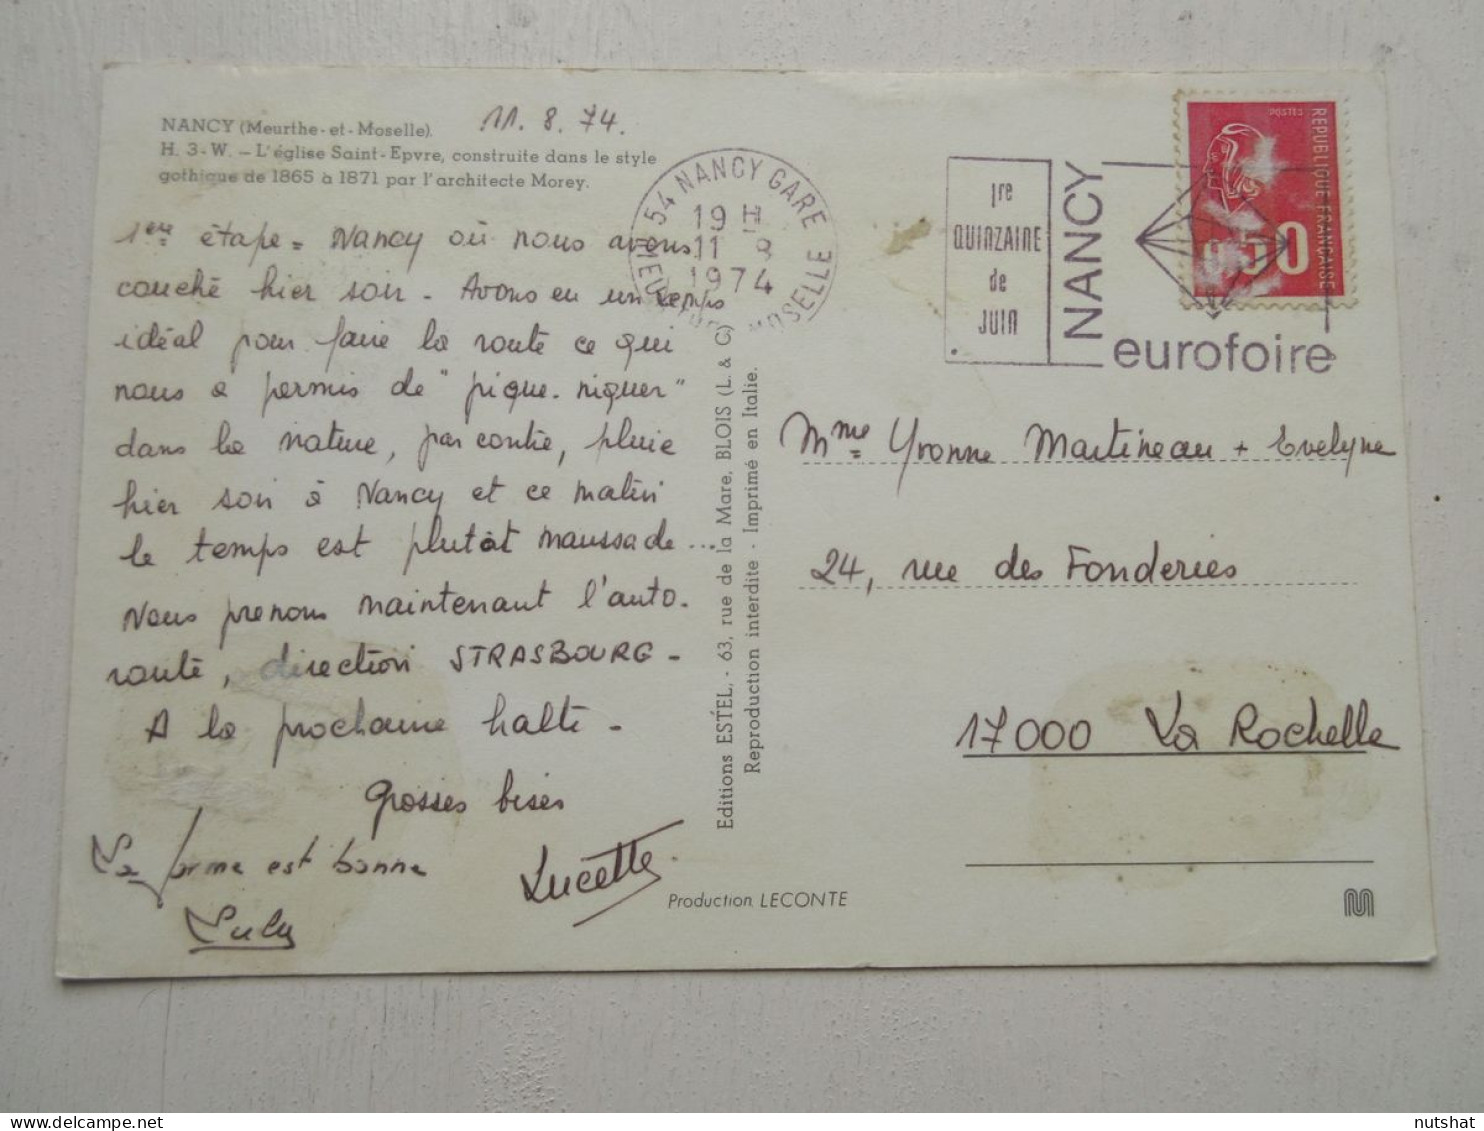 NANCY (Meurthe-et-Moselle).
H. 3-W. – L'église Saint-Epvre, construite dans le style
gothique de 1865 à 1871 par l'architecte Morey.
11.8.74.
1ere étape = Nancy où nous avons
couché hier soir - Avons eu un temps
idéal pour faire la route ce qui
nous a permis de "pique-niquer"
dans la nature, par contre, pluie
hier soir à Nancy et ce matin
le temps est plutôt maussade...
Nous prenons maintenant l'auto-
route, direction STRASBOURG -
A la prochaine halte -
Grosses bises
La forme est bonne
Lucette
Production LECONTE
Editions ESTEL, - 63, rue de la Mare, BLOIS (L. & C)
Reproduction interdite - Imprimé en Italie.
54 NANCY GARE
19 H
11 8
1974
MOSELLE
1re
QUINZAINE
de
JUIN
NANCY
eurofoire
POSTES
REPUBLIQUE FRANÇAISE
Mme Yvonne Martineau + Evelyne
24, rue des Fonderies
17000 La Rochelle
nutshat
delcampe.net